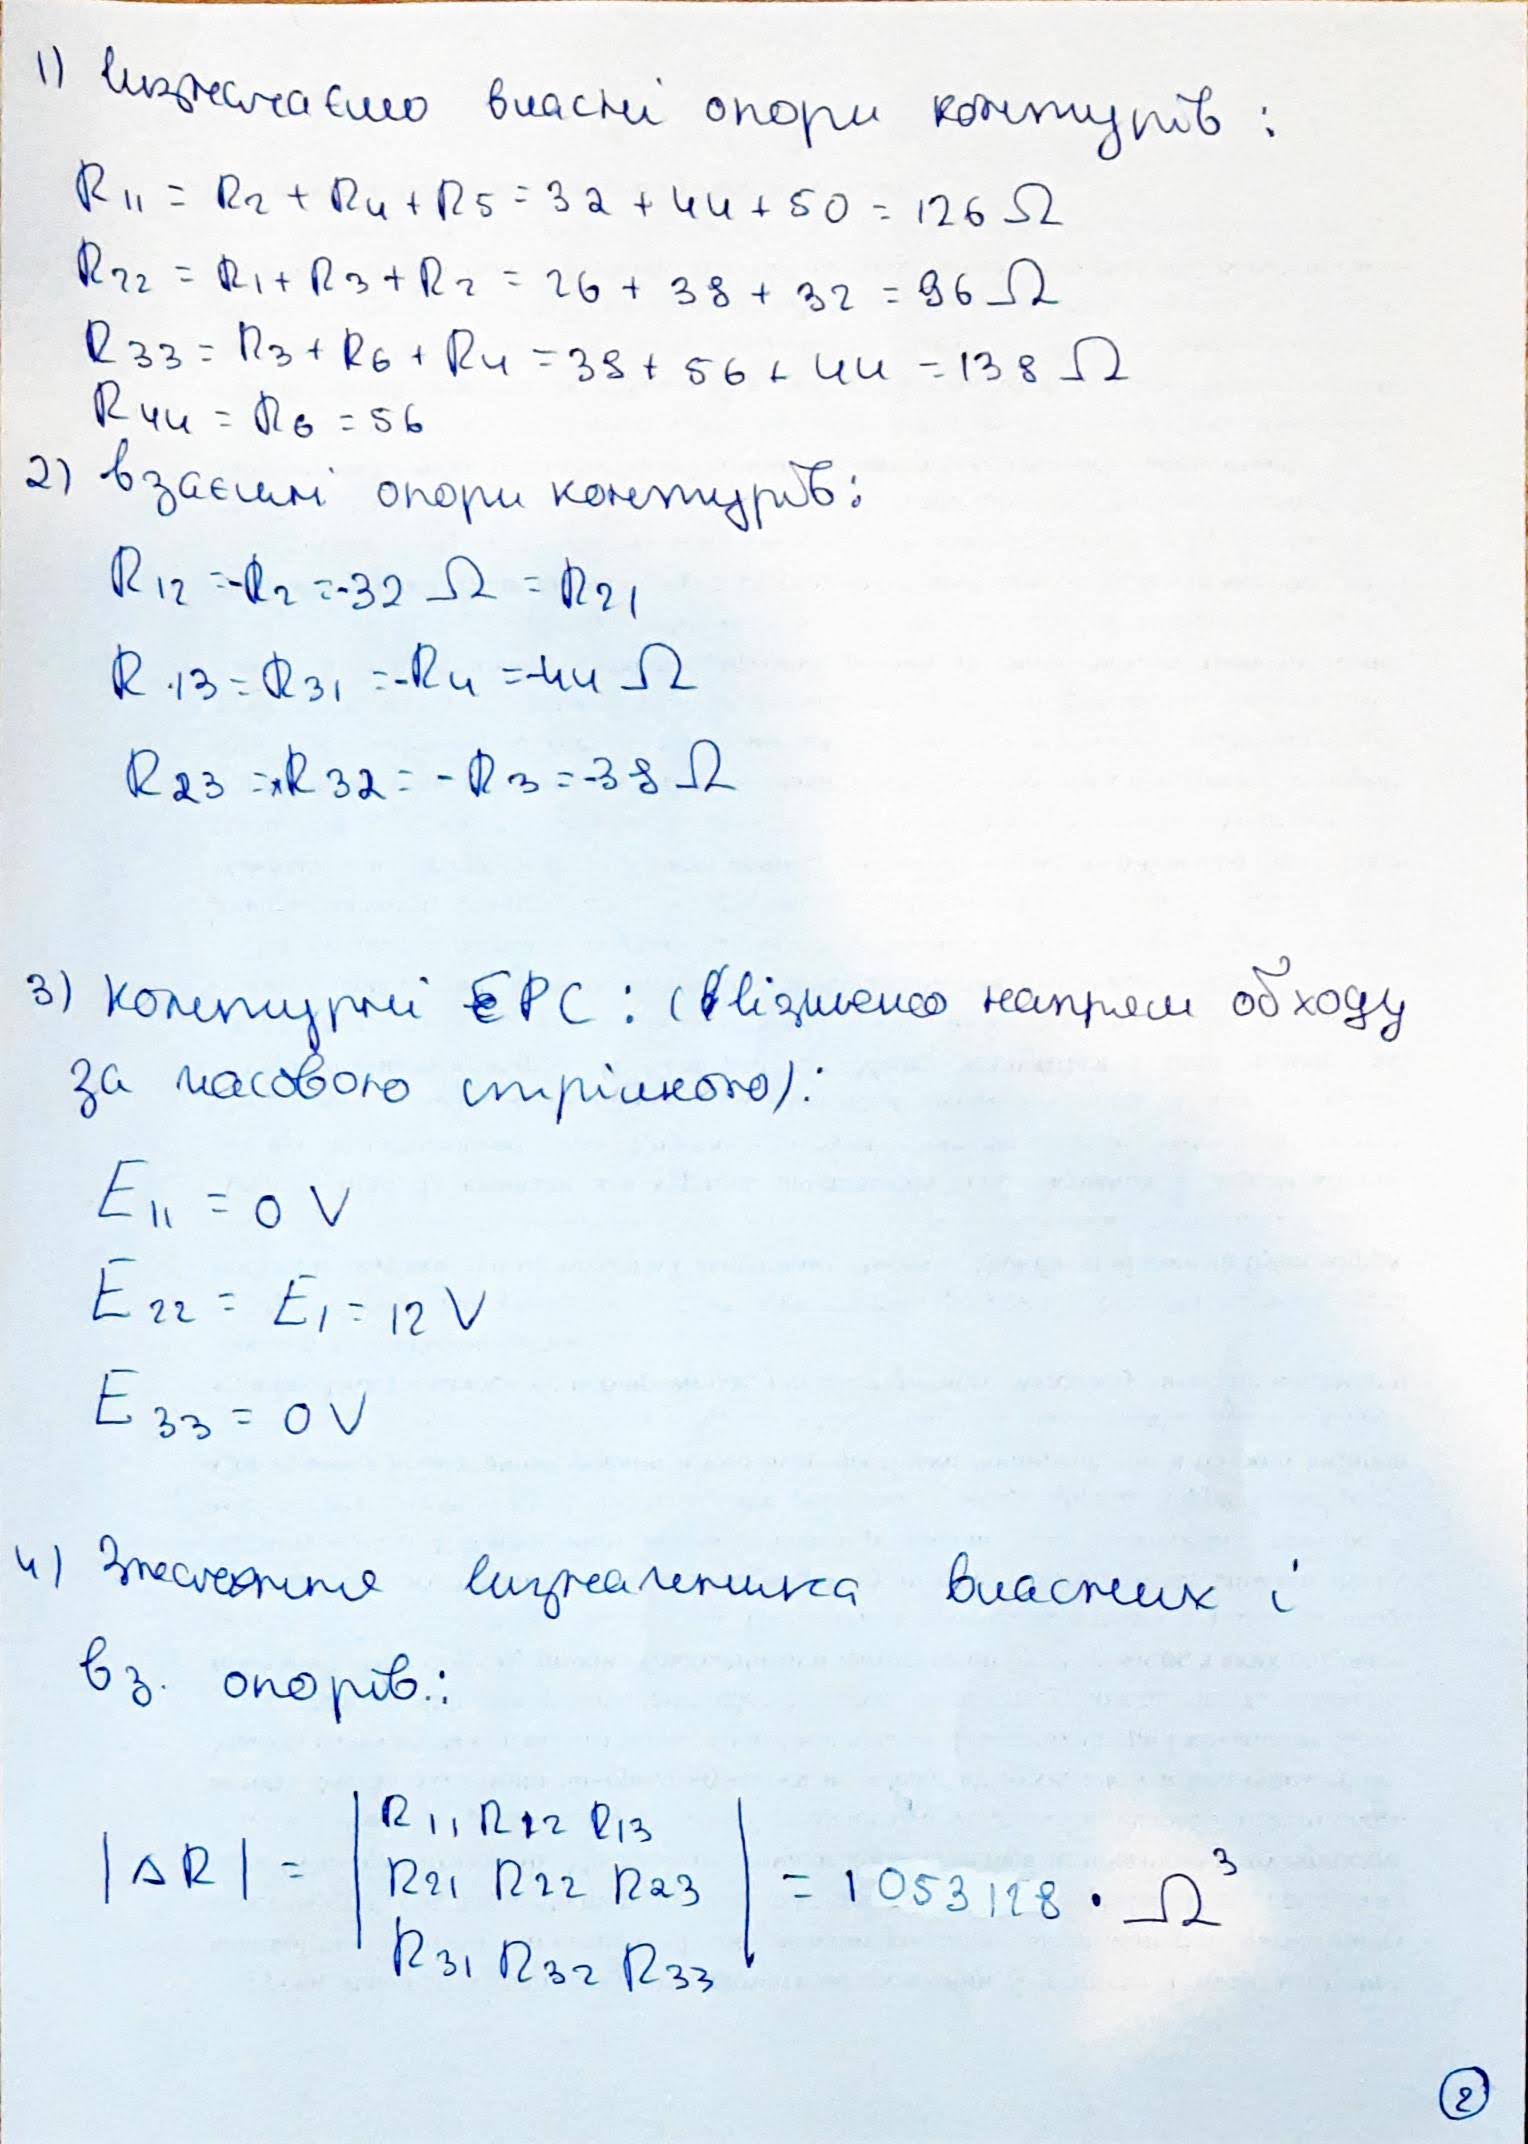 1) Визначаємо власні опори контурів :
R11 = R2 + R4 + R5 = 32 + 44 + 50 = 126 Ω
R22 = R1 + R3 + R2 = 26 + 38 + 32 = 96 Ω
R33 = R3 + R6 + R4 = 38 + 56 + 44 = 138 Ω
R44 = R6 = 56
2) взаємні опори контурів :
R12 = -R2 = -32 Ω = R21
R13 = R31 = -R4 = -44 Ω
R23 = R32 = - R3 = -38 Ω
3) контурні ЕРС : (візьмемо напрям обходу
за часовою стрілкою) :
E11 = 0 V
E22 = E1 = 12 V
E33 = 0 V
4) Значення визначника власних і
вз. опорів. :
|ΔR| = | R11 R12 R13
R21 R22 R23 | = 1 053 128 · Ω³
R31 R32 R33
2